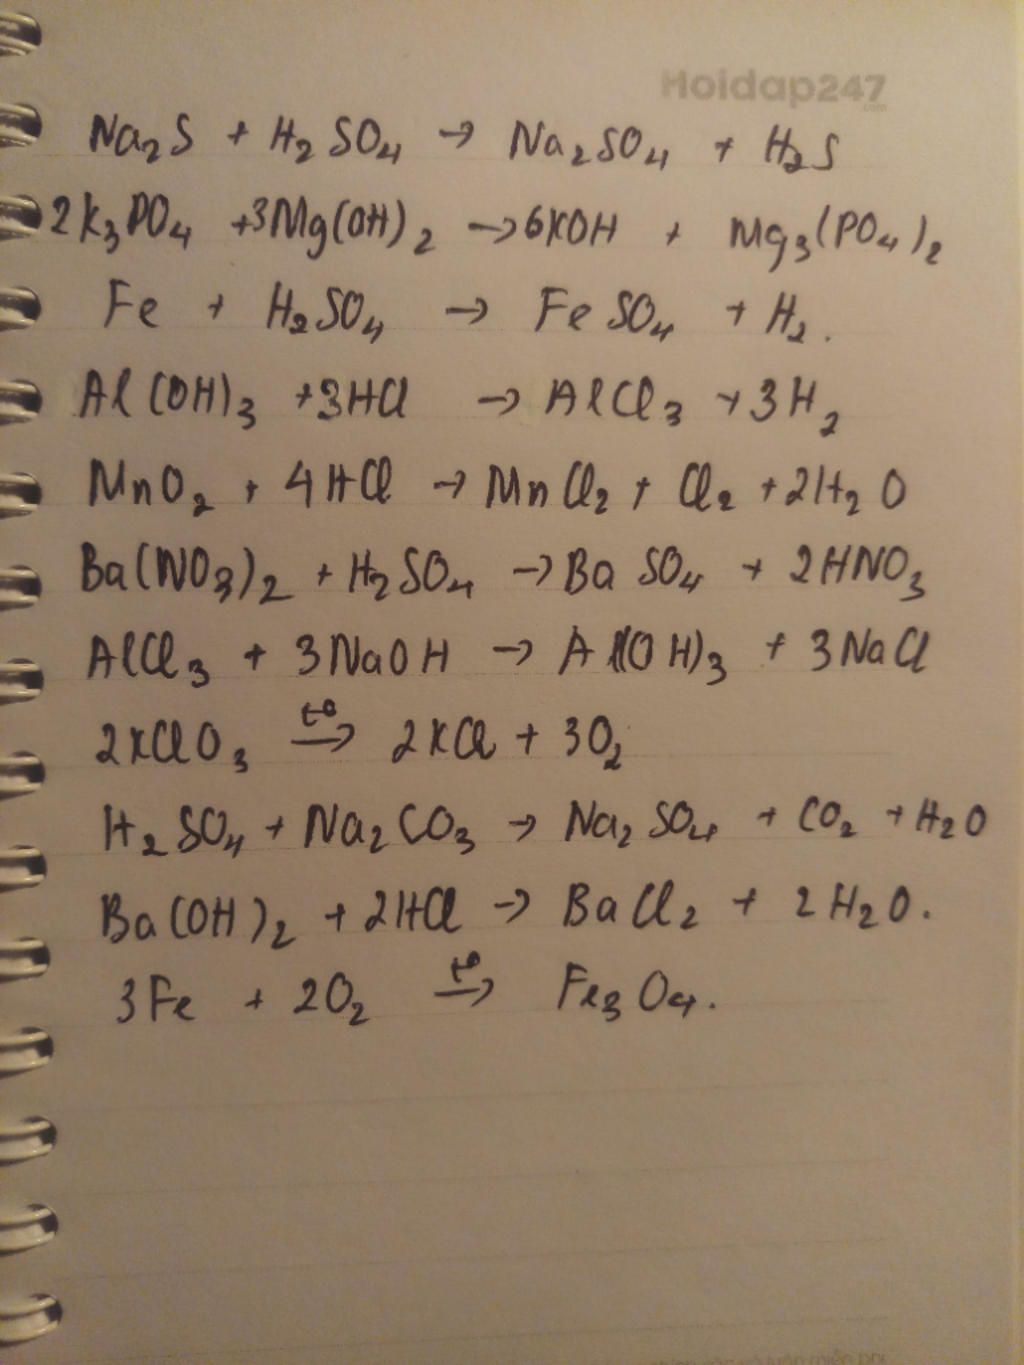 Hoidap247
.com
Na₂S + H₂SO₄ → Na₂SO₄ + H₂S
2K₃PO₄ +3Mg(OH)₂ →6KOH + Mg₃(PO₄)₂
Fe + H₂SO₄ → FeSO₄ + H₂.
Al(OH)₃ +3HCl → AlCl₃ +3H₂
MnO₂ + 4HCl → MnCl₂ + Cl₂ +2H₂O
Ba(NO₃)₂ + H₂SO₄ → BaSO₄ + 2HNO₃
AlCl₃ + 3NaOH → Al(OH)₃ + 3NaCl
2KClO₃ t° → 2KCl + 3O₂
H₂SO₄ + Na₂CO₃ → Na₂SO₄ + CO₂ + H₂O
Ba(OH)₂ + 2HCl → BaCl₂ + 2H₂O.
3Fe + 2O₂ t° → Fe₃O₄.